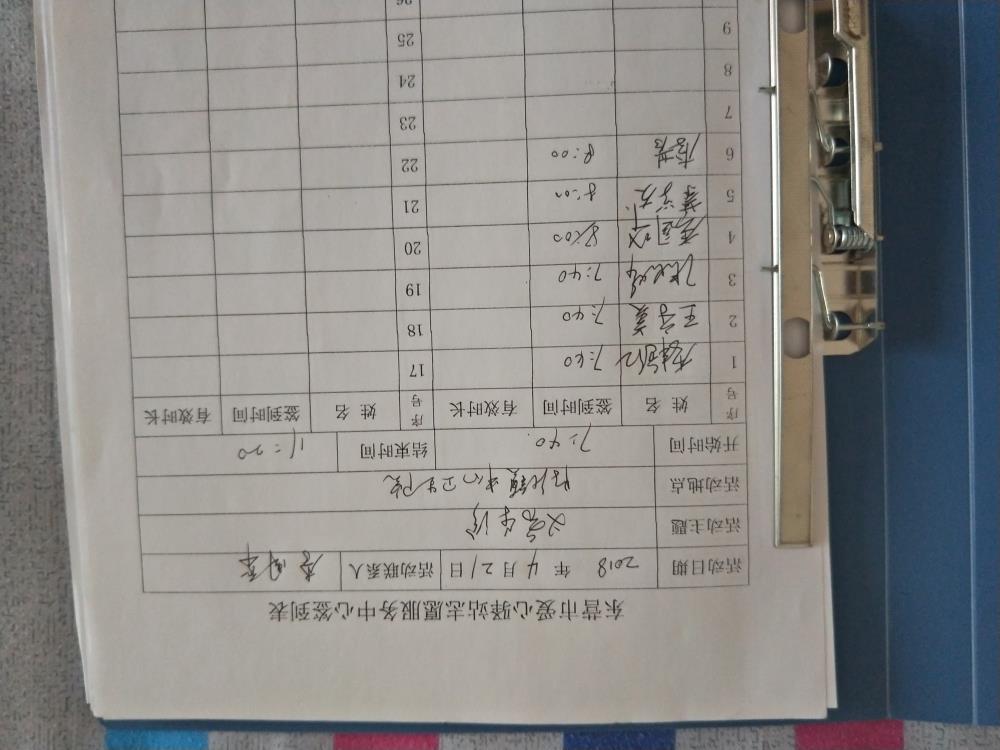 东营市爱心驿站志愿服务中心签到表
活动日期 2018 年 4 月 21 日 活动联系人
活动主题 义务导诊
活动地点 中心卫生院
开始时间 7:40 结束时间 11:20
序号 姓名 签到时间 有效时长 序号 姓名 签到时间 有效时长
1 7:40 17
2 7:40 18
3 7:40 19
4 8:00 20
5 8:00 21
6 8:00 22
7 23
8 24
9 25
26